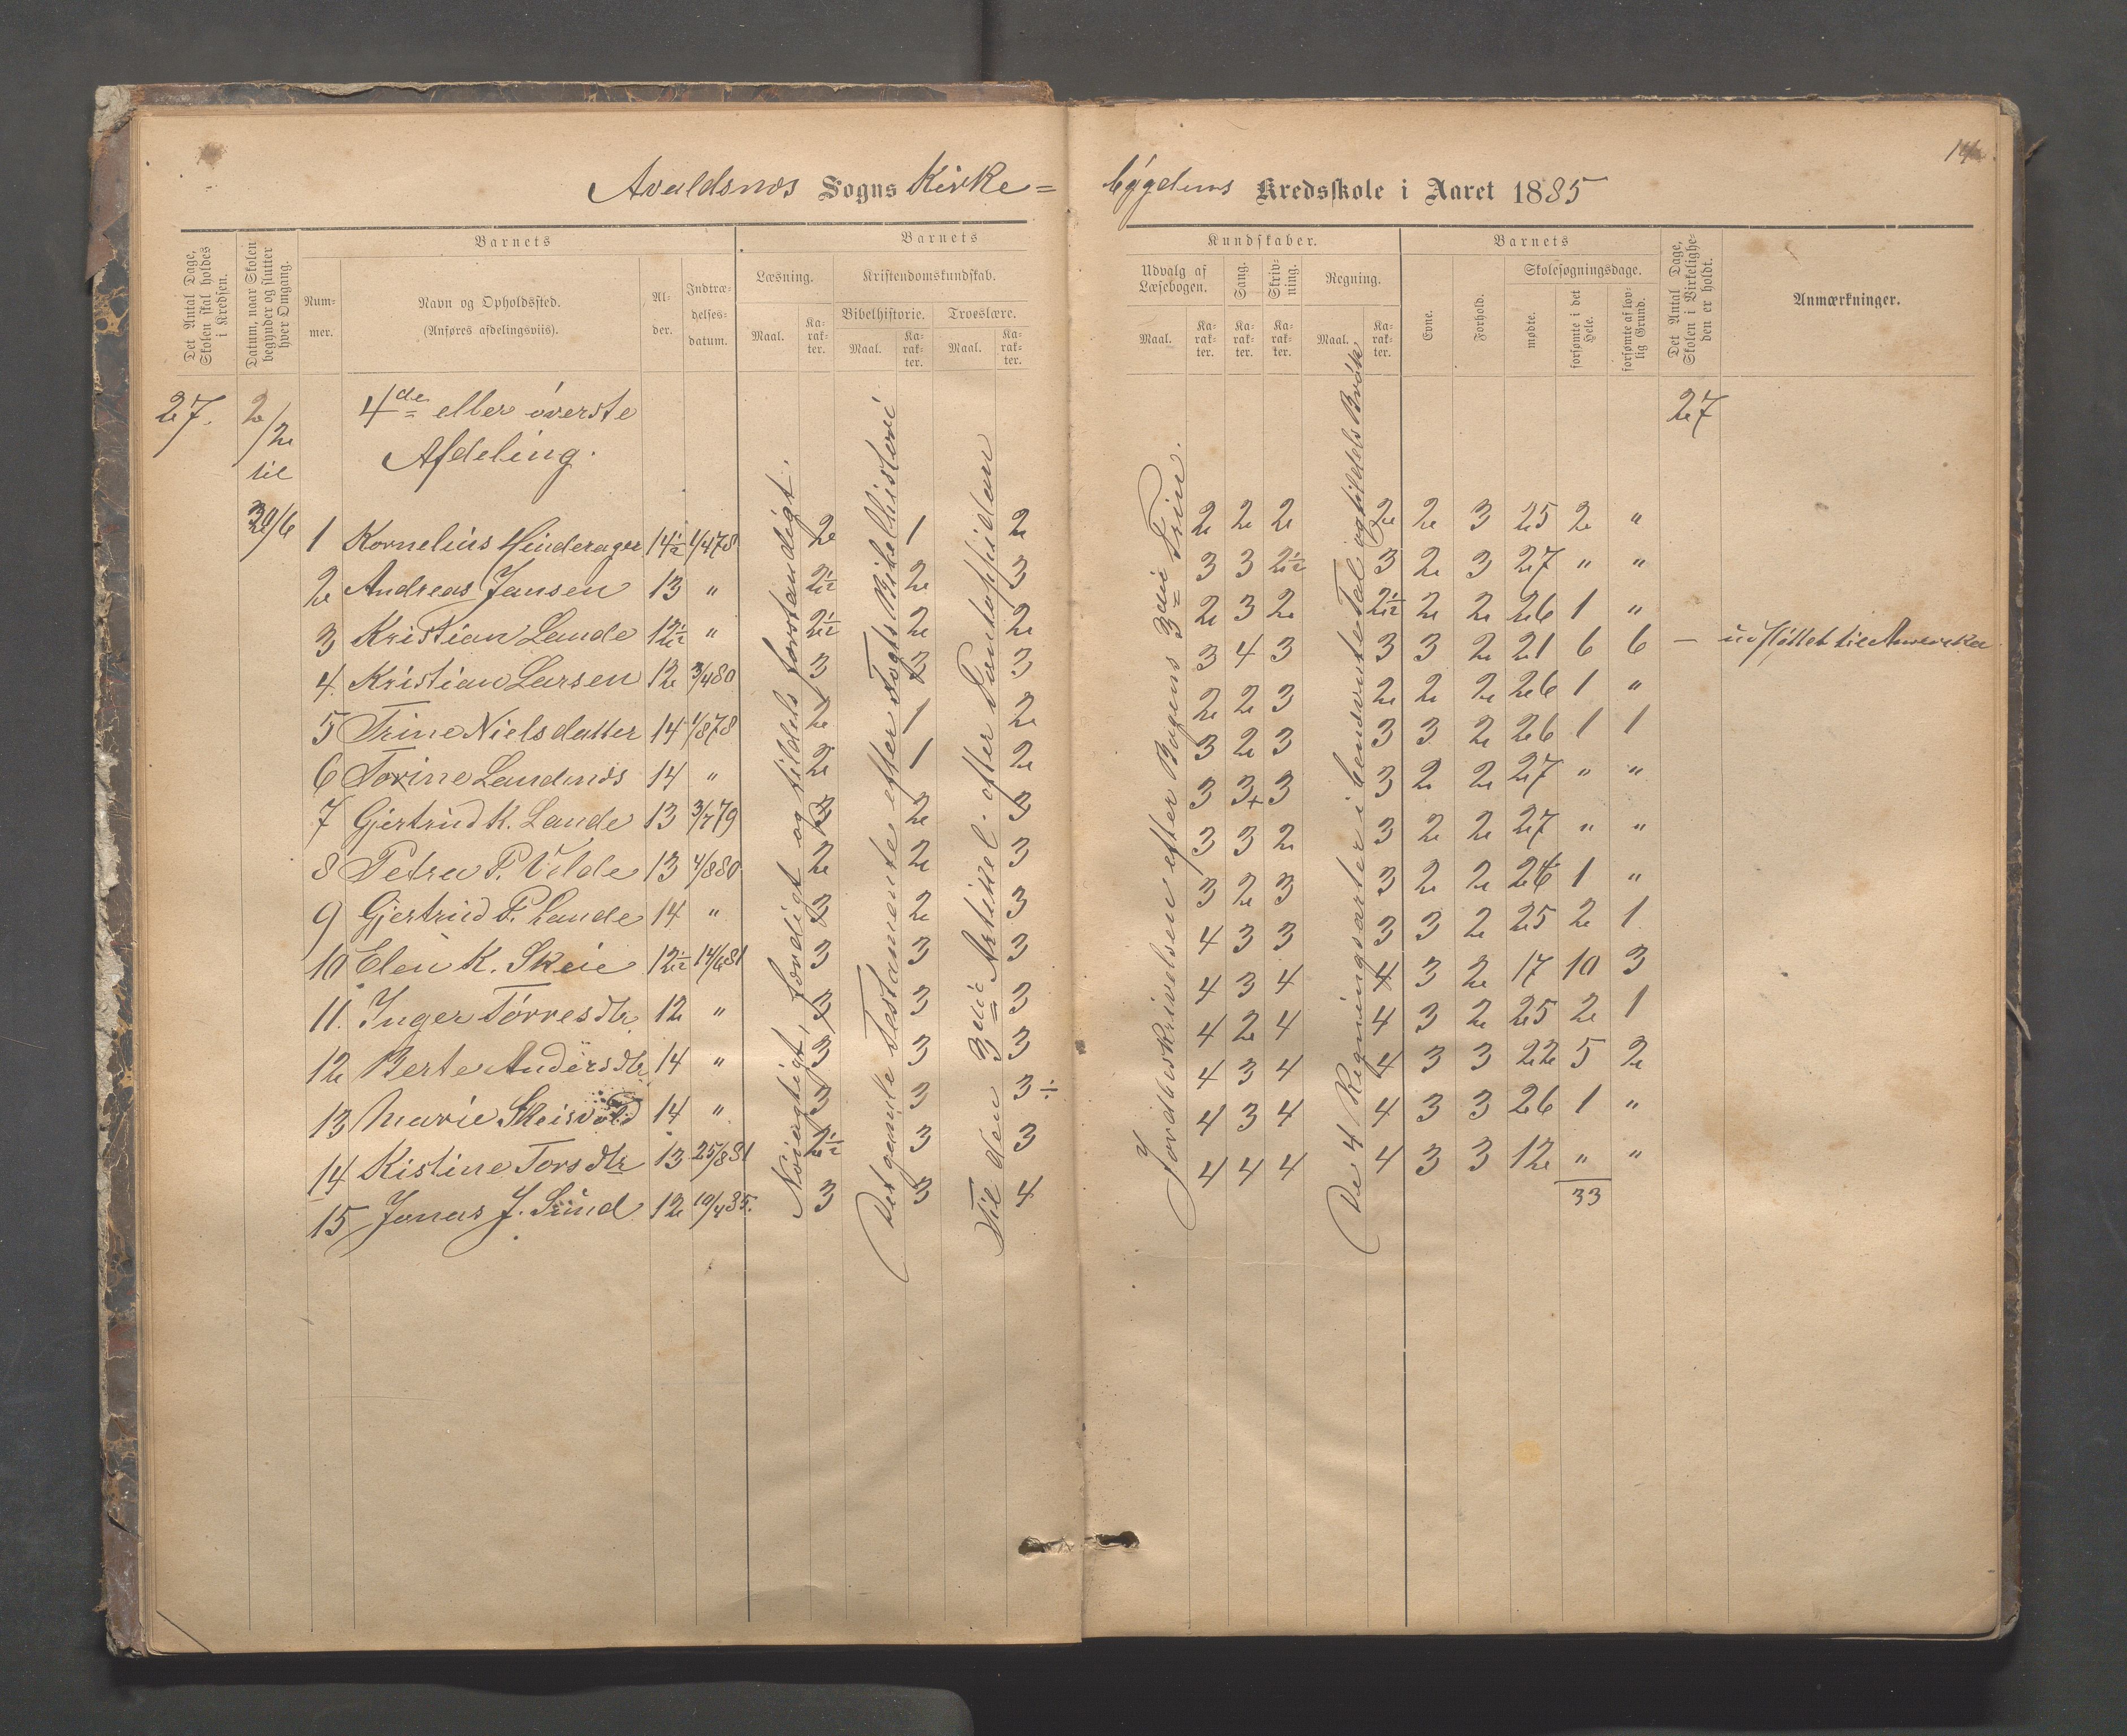 Avaldsnes Sogns Kirke=
bygdens Kredsskole i Aaret 1885
Det Antal Dage, Skolen skal holdes i Kredsen.
Datum, naar Skolen begynder og slutter hver Omgang.
Barnets
Nummer.
Navn og Opholdssted.
(Anføres afdelingsviis).
Alder.
Indtrædelsesdatum.
Barnets
Læsning.
Kristendomskundskab.
Bibelhistorie.
Troeslære.
Maal.
Karakter.
Maal.
Karakter.
Maal.
Karakter.
Kundskaber.
Udvalg af Læsebogen.
Sang.
Skrivning.
Regning.
Maal.
Karakter.
Karakter.
Karakter.
Maal.
Karakter.
Barnets
Evne.
Forhold.
Skolesøgningsdage.
mødte.
forsømte i det Hele.
forsømte af lovlig Grund.
Det Antal Dage, Skolen i Virkeligheden er holdt.
Anmærkninger.
27. 2/2 til 4de eller øverste 27
Afdeling.
1 Kornelius Hinderager 14½ 1/4 78 2 1 2 2 2 2 2 2 3 25 2 "
2 Andreas Jansen 13 " 2½ 2 3 3 3 2½ 3 2 3 27 " "
3 Kristian Lande 12½ " 2½ 2 2 2 3 2 2½ 2 2 26 1 "
4. Kristian Larsen 12 3/4 80 3 3 3 3 4 3 3 3 2 21 6 6 – udflyttet til Amerika
5 Trine Nielsdatter 14 1/8 78 2 1 2 2 2 3 2 2 2 26 1 "
6 Torine Landenes 14 " 2 1 2 3 2 3 3 3 2 26 1 1
7 Gjertrud K. Lande 13 3/7 79 3 2 3 3 3+ 3 3 2 2 27 " "
8 Petra P. Velde 13 4/8 80 2 2 3 3 3 2 3 2 2 27 " "
9 Gjertrud P. Lande 14 " 3 2 3 3 2 3 3 2 2 26 1 "
10 Elen K. Skeie 12½ 14/6 81 3 3 3 4 3 3 3 3 2 25 2 1
11. Inger Tørresdtr 12 " 3 3 3 4 3 4 4 3 2 17 10 3
12 Berte Andersdtr 14 " 3 3 3 4 2 4 4 3 2 25 2 1
13 Marie Skeisvold 14 " 3 3 3÷ 4 3 4 4 3 3 22 5 2
14 Kistine Torsdtr 13 25/8 81 2½ 3 3 4 3 4 4 3 3 26 1 "
15 Jonas J. Sund 12 10/4 85. 3 3 4 4 4 4 4 3 3 12 " "
33
Nøiagtigt, færdigt og tildels forstandigt.
Det gamle Testamente efter Vogts Bibelhistori
Til den 3die Artikel efter Pontoppidan
Jordbeskrivelsen efter Bogens 3die Trin.
De 4 Regningsarter i benævnte Tal og tildels Brøk